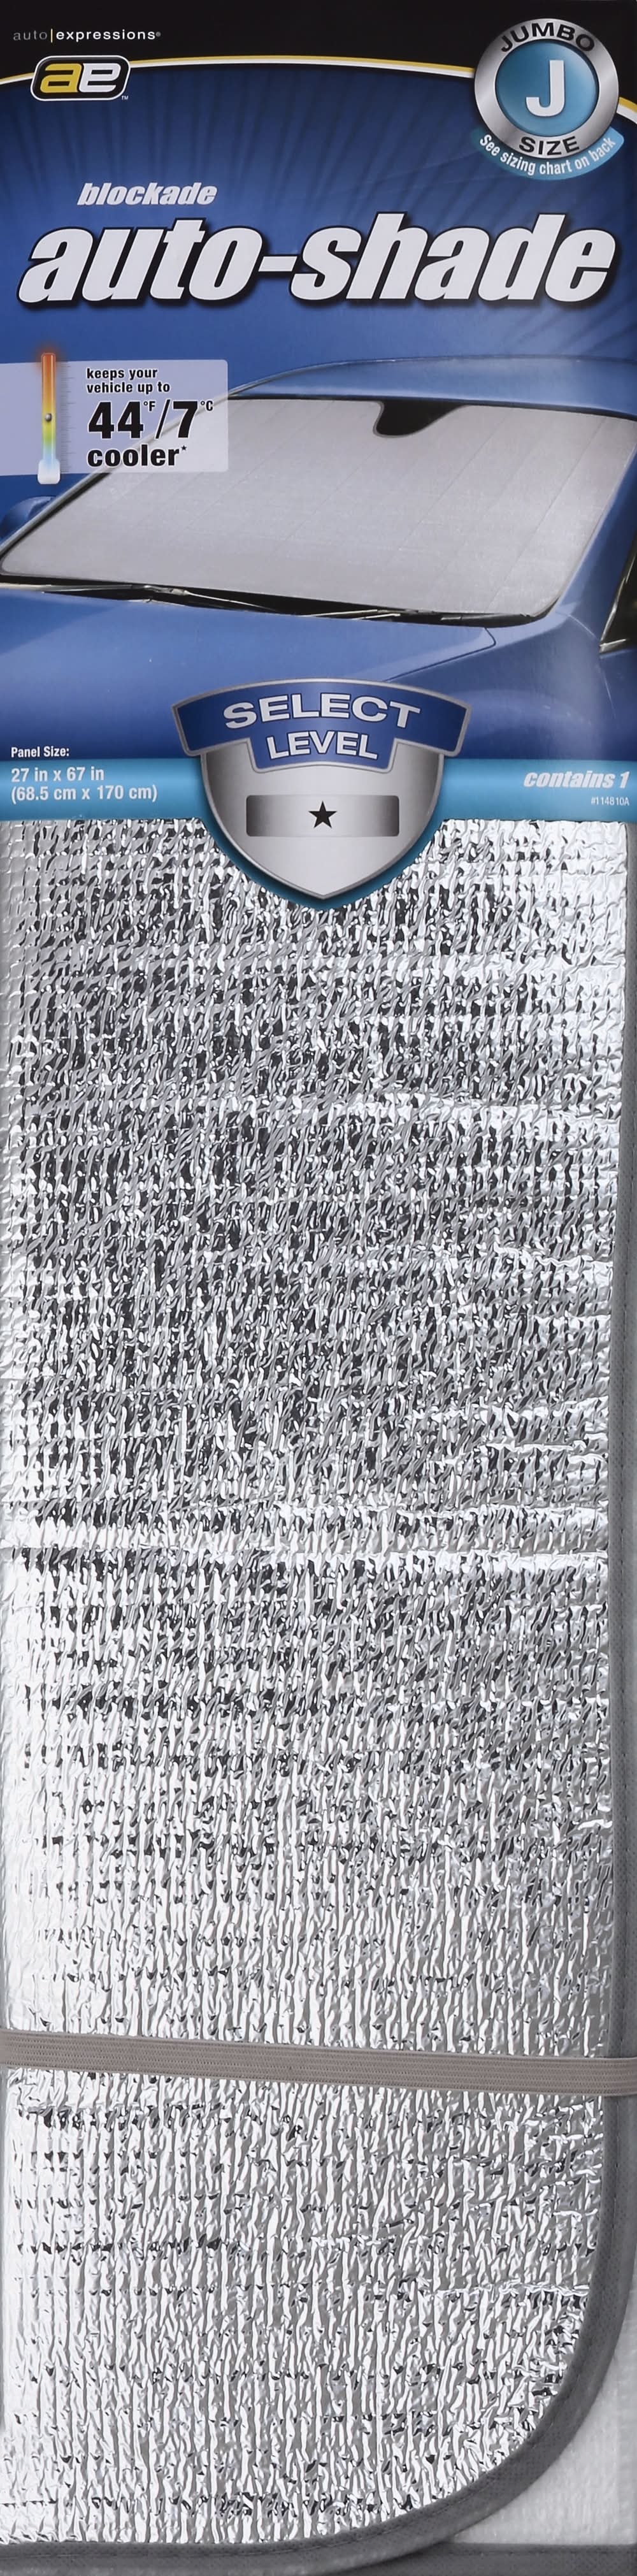 auto|expressions®
ae™
JUMBO
J
SIZE
See sizing chart on back
blockade
auto-shade
keeps your
vehicle up to
44°F/7°C
cooler*
SELECT
LEVEL
Panel Size:
27 in x 67 in
(68.5 cm x 170 cm)
contains 1
#114810A